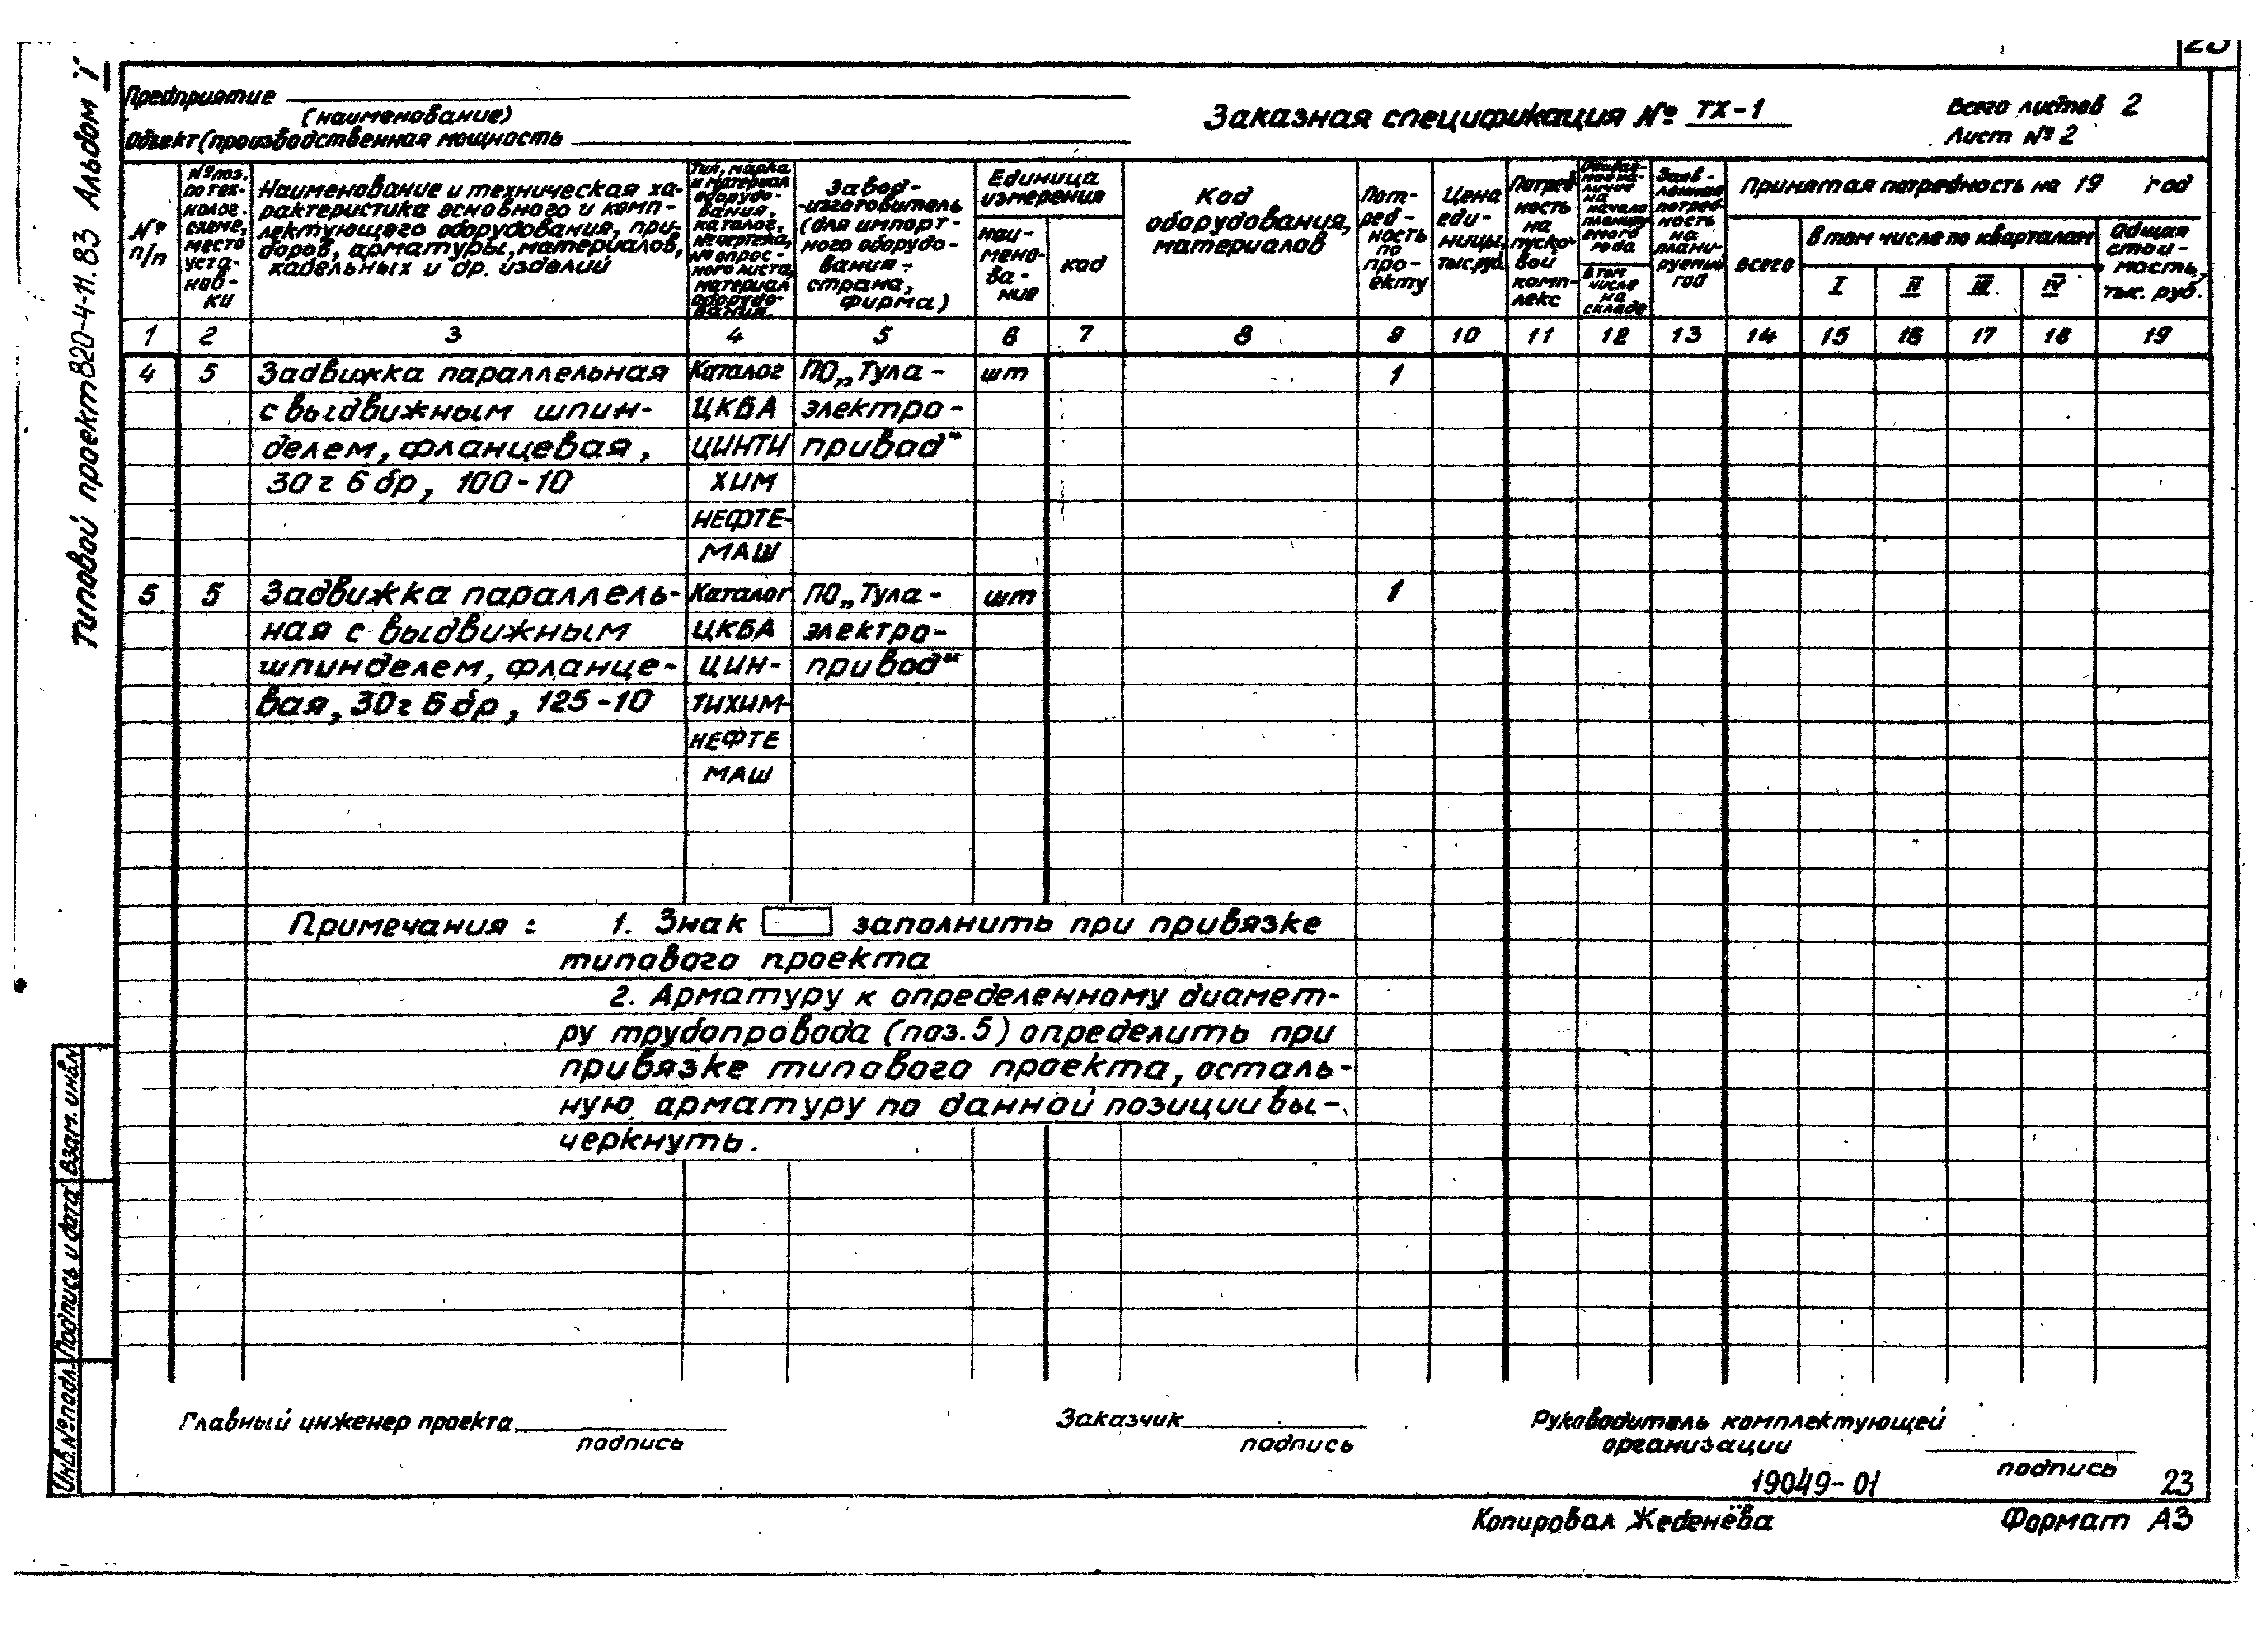 23
Типовой проект 820-4-11.83 Альбом I
Предприятие
(наименование)
Объект (производственная мощность
Заказная спецификация № ТХ-1
Всего листов 2
Лист № 2
№ п/п
№ поз. по технолог. схеме, место уста-нов-ки
Наименование и техническая ха-
рактеристика основного и комп-
лектующего оборудования, при-
боров, арматуры, материалов,
кабельных и др. изделий
Тип, марка
и материал
оборудо-
вания,
каталог,
№ чертежа,
№ опрос-
ного листа,
материал
оборудо-
вания.
Завод-
-изготовитель
(для импорт-
ного оборудо-
вания -
страна,
фирма)
Единица
измерения
наи-
мено-
ва-
ние
код
Код
оборудования,
материалов
Пот-
реб-
ность
по
про-
екту
Цена
еди-
ницы,
тыс.руб.
Потреб
ность
на
пуско-
вой
комп-
лекс
на
начало
года
в том
числе
на
складе
Заяв-
ленная
потреб-
ность
на
плани-
руемый
год
Принятая потребность на 19 год
всего
в том числе по кварталам
I II III IV
Общая
стои-
мость,
тыс. руб.
1 2 3 4 5 6 7 8 9 10 11 12 13 14 15 16 17 18 19
4 5 Задвижка параллельная Каталог ПО „Тула- шт 1
с выдвижным шпин- ЦКБА электро-
делем, фланцевая, ЦИНТИ привод"
30ч6бр, 100-10 ХИМ
НЕФТЕ-
МАШ
5 5 Задвижка параллель- Каталог ПО „Тула- шт 1
ная с выдвижным ЦКБА электро-
шпинделем, фланце- ЦИН- привод"
вая, 30ч6бр, 125-10 ТИХИМ-
НЕФТЕ
МАШ
Примечания: 1. Знак заполнить при привязке
типового проекта
2. Арматуру к определенному диамет-
ру трубопровода (поз.5) определить при
привязке типового проекта, осталь-
ную арматуру по данной позиции вы-
черкнуть.
Взам. инв.№
Подпись и дата
Инв.№ подл.
Главный инженер проекта
подпись
Заказчик
подпись
Руководитель комплектующей
организации
подпись
19049-01
23
Копировал Жеденёва
Формат А3